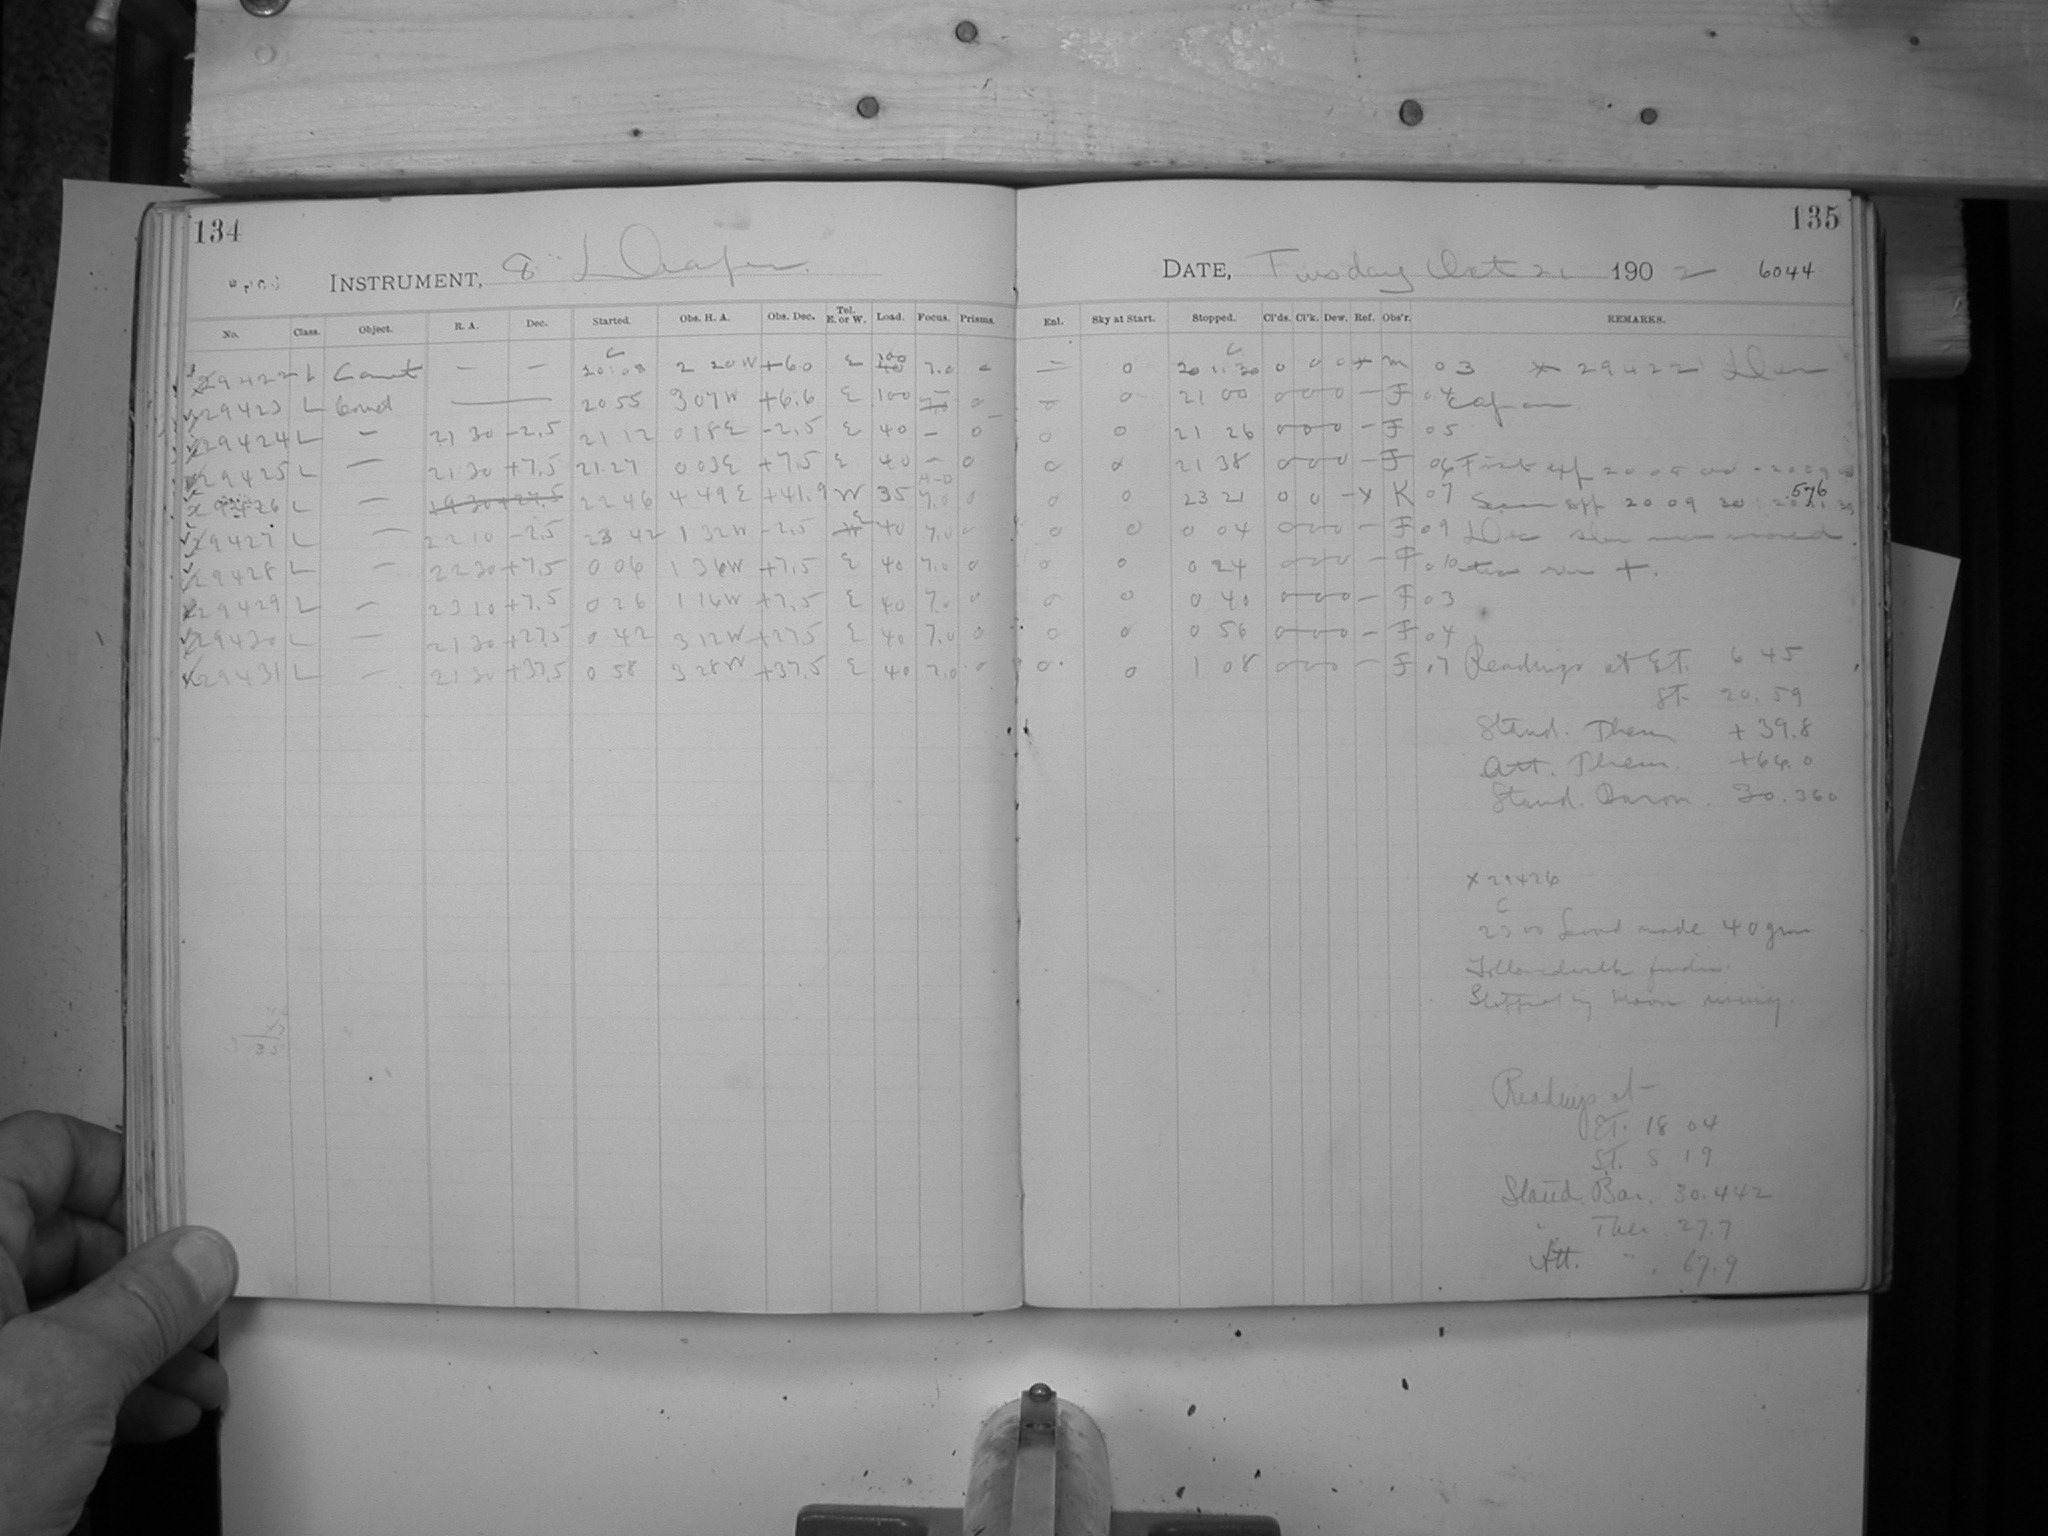 134
135
INSTRUMENT, 8" Draper
DATE, Tuesday Oct 21 1902 6044
No. Class. Object. R. A. Dec. Started. Obs. H. A. Obs. Dec. Tel. E. or W. Load. Focus. Prisms. Enl. Sky at Start. Stopped. Cl'ds. Cl'k. Dew. Ref. Obs'r. REMARKS.
29422 L Comet — — 20 08 2 20 W +60 E 7.0 0 — 0 0 0 0 x m 03 x 29422
29423 L Comet — 20 55 3 07 W +6.6 E 100 0 — 0 21 00 0 0 0 – F 04
29424 L — 21 30 –2.5 21 12 0 18 E –2.5 E 40 – 0 0 0 21 26 0 0 0 – F 05
29425 L — 21 30 +7.5 21 27 0 03 E +7.5 E 40 – 0 0 0 21 38 0 0 0 – F 06 First exp
29426 L — 22 46 4 49 E +41.9 W 35 7.0 0 0 0 23 21 0 0 – x K 07 exp 20 09 30 576
29427 L — 22 10 –2.5 23 42 1 32 W –2.5 E 40 7.0 0 0 0 0 04 0 0 0 – F 09
29428 L — 22 30 +7.5 0 06 1 36 W +7.5 E 40 7.0 0 0 0 0 24 0 0 0 – F 010
29429 L — 23 10 +7.5 0 26 1 16 W +7.5 E 40 7.0 0 0 0 0 40 0 0 0 – F 03
29430 L — 21 30 +27.5 0 42 3 12 W +27.5 E 40 7.0 0 0 0 0 56 0 0 0 – F 04
29431 L — 21 30 +37.5 0 58 3 28 W +37.5 E 40 7.0 0 0 0 1 08 0 0 0 – F 07 Readings at E.T. 6 45
ST. 20.59
Stand. Therm +39.8
Att. Therm. +66.0
Stand. Barom. 30.360
x 29426
C
23 00 Load made 40 grm
Followed with finder
Stopped by moon rising.
35
Readings at
ET. 18 04
ST. 8 19
Stand. Bar. 30.442
" Ther. 27.7
Att. " . 67.9